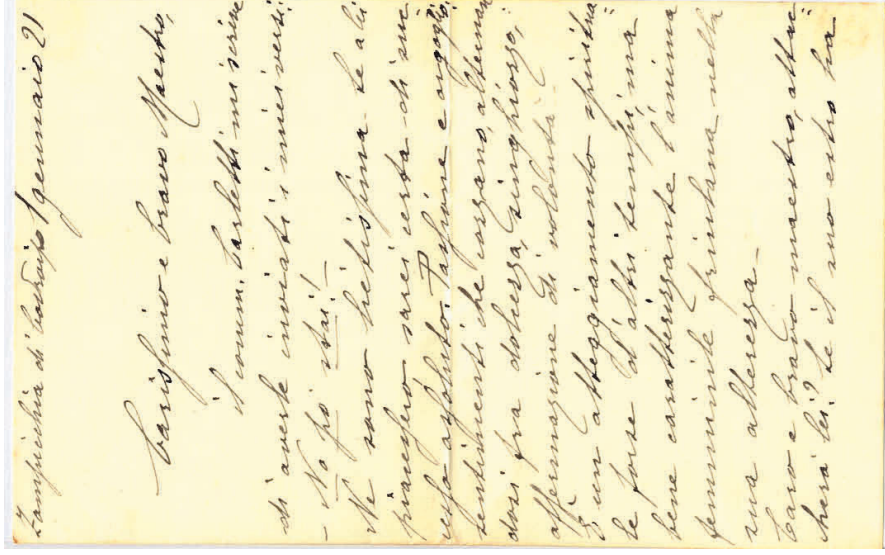 Zampicchia di Codroipo 1 gennaio 21
Carissimo e bravo Maestro,
il comm. Carletti mi scrive
di averle inviati i miei versi:
- No po staì! -
Ne sono lietissima. Se a lei
piacessero sarei certa di suc=
cesso assoluto. Passione e orgoglio,
sentimenti che cozzano, alternan
dosi fra dolcezza, singhiozzo,
affermazione di volontà.
È un atteggiamento spiritua=
le forse d'altri tempi, ma
bene caratterizzante l'anima
femminile friulana nella
sua alterezza -
Caro e bravo maestro, attac=
cherà lei? Se il suo estro ha